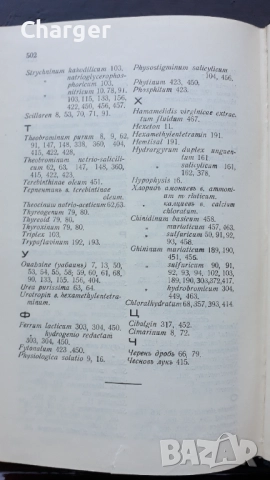 Charger
502
Strychninum kakodilicum 103.
" natrioglycerophos-
phoricum 103.
" nitricum 19, 78, 91
103, 115, 133, 156
422, 450, 456, 457
Scillaren 8, 53, 70, 71, 91.
Т
Theobrominum purum 8, 9, 62
91, 147, 148, 338, 360, 404,
415, 422, 428.
Theobrominum natrio-salicili-
cum 62, 63, 147, 148, 360,
415, 422, 423.
Terebinthinae oleum 451.
Theocinum natrio-aceticum 62, 63.
Thyreogenum 79, 80.
Thyreoid 79, 80.
Thyroninum 79, 80.
Triplex 103.
Trypaflavinum 192, 193.
У
Ouabaine (уабаин) 7, 13, 50,
53, 54, 55, 58, 59, 60, 61, 68,
90, 133, 155, 156, 404.
Urea purissima 63, 64.
Urotropin в. hexamethylentetra-
minum.
Ф
Ferrum lacticum 303, 304, 450.
" hydrogenio redactum
303, 304, 450.
Fytanolum 423, 450.
Physiologica solutio 9, 16.
Physostigminum salicylicum
104, 456.
Phytinum 423, 450.
Phosphitum 423.
Х
Hamamelidis virginicae extrac-
tum fluidum 467.
Hexeton 11.
Hexamethylentetramin 191.
Hextinol 191.
Hydrargyrum duplex anguen-
tum 161
" salicylicum 161,
162, 378.
Hypophysis 16.
Chinidinum basicum 458.
" muriaticum 457, 463.
" sulfuricum 59, 91, 92,
93, 451, 458.
Chininum muriaticum 189, 190
451, 456.
" sulfuricum 90, 91,
92, 93, 94, 102, 103,
189, 190, 303, 372, 417.
" hydrobromicum 304,
449, 463.
Chloralhydratum 68, 357, 393, 414.
Ц
Cibalgin 317, 452.
Cimarinum 8, 72.
Ч
Черень дробь 66, 79.
Чесновъ лукъ 415.
BAZAR